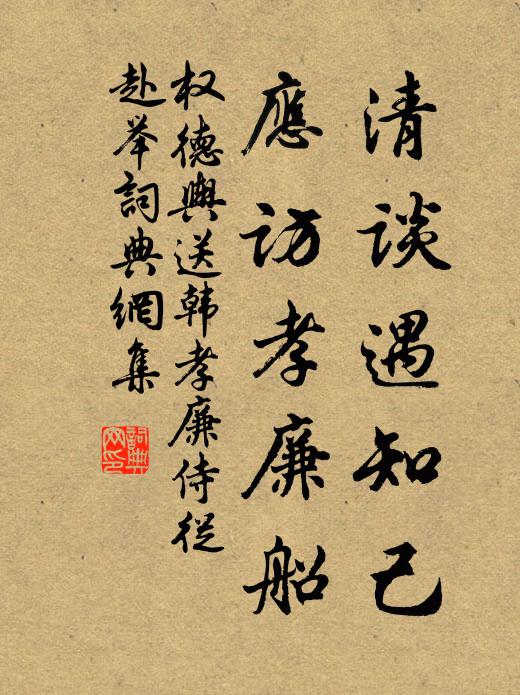 清谈遇知己
應访孝廉船
权德輿送韩孝廉侍從
赴举詞典網集
詞典网印